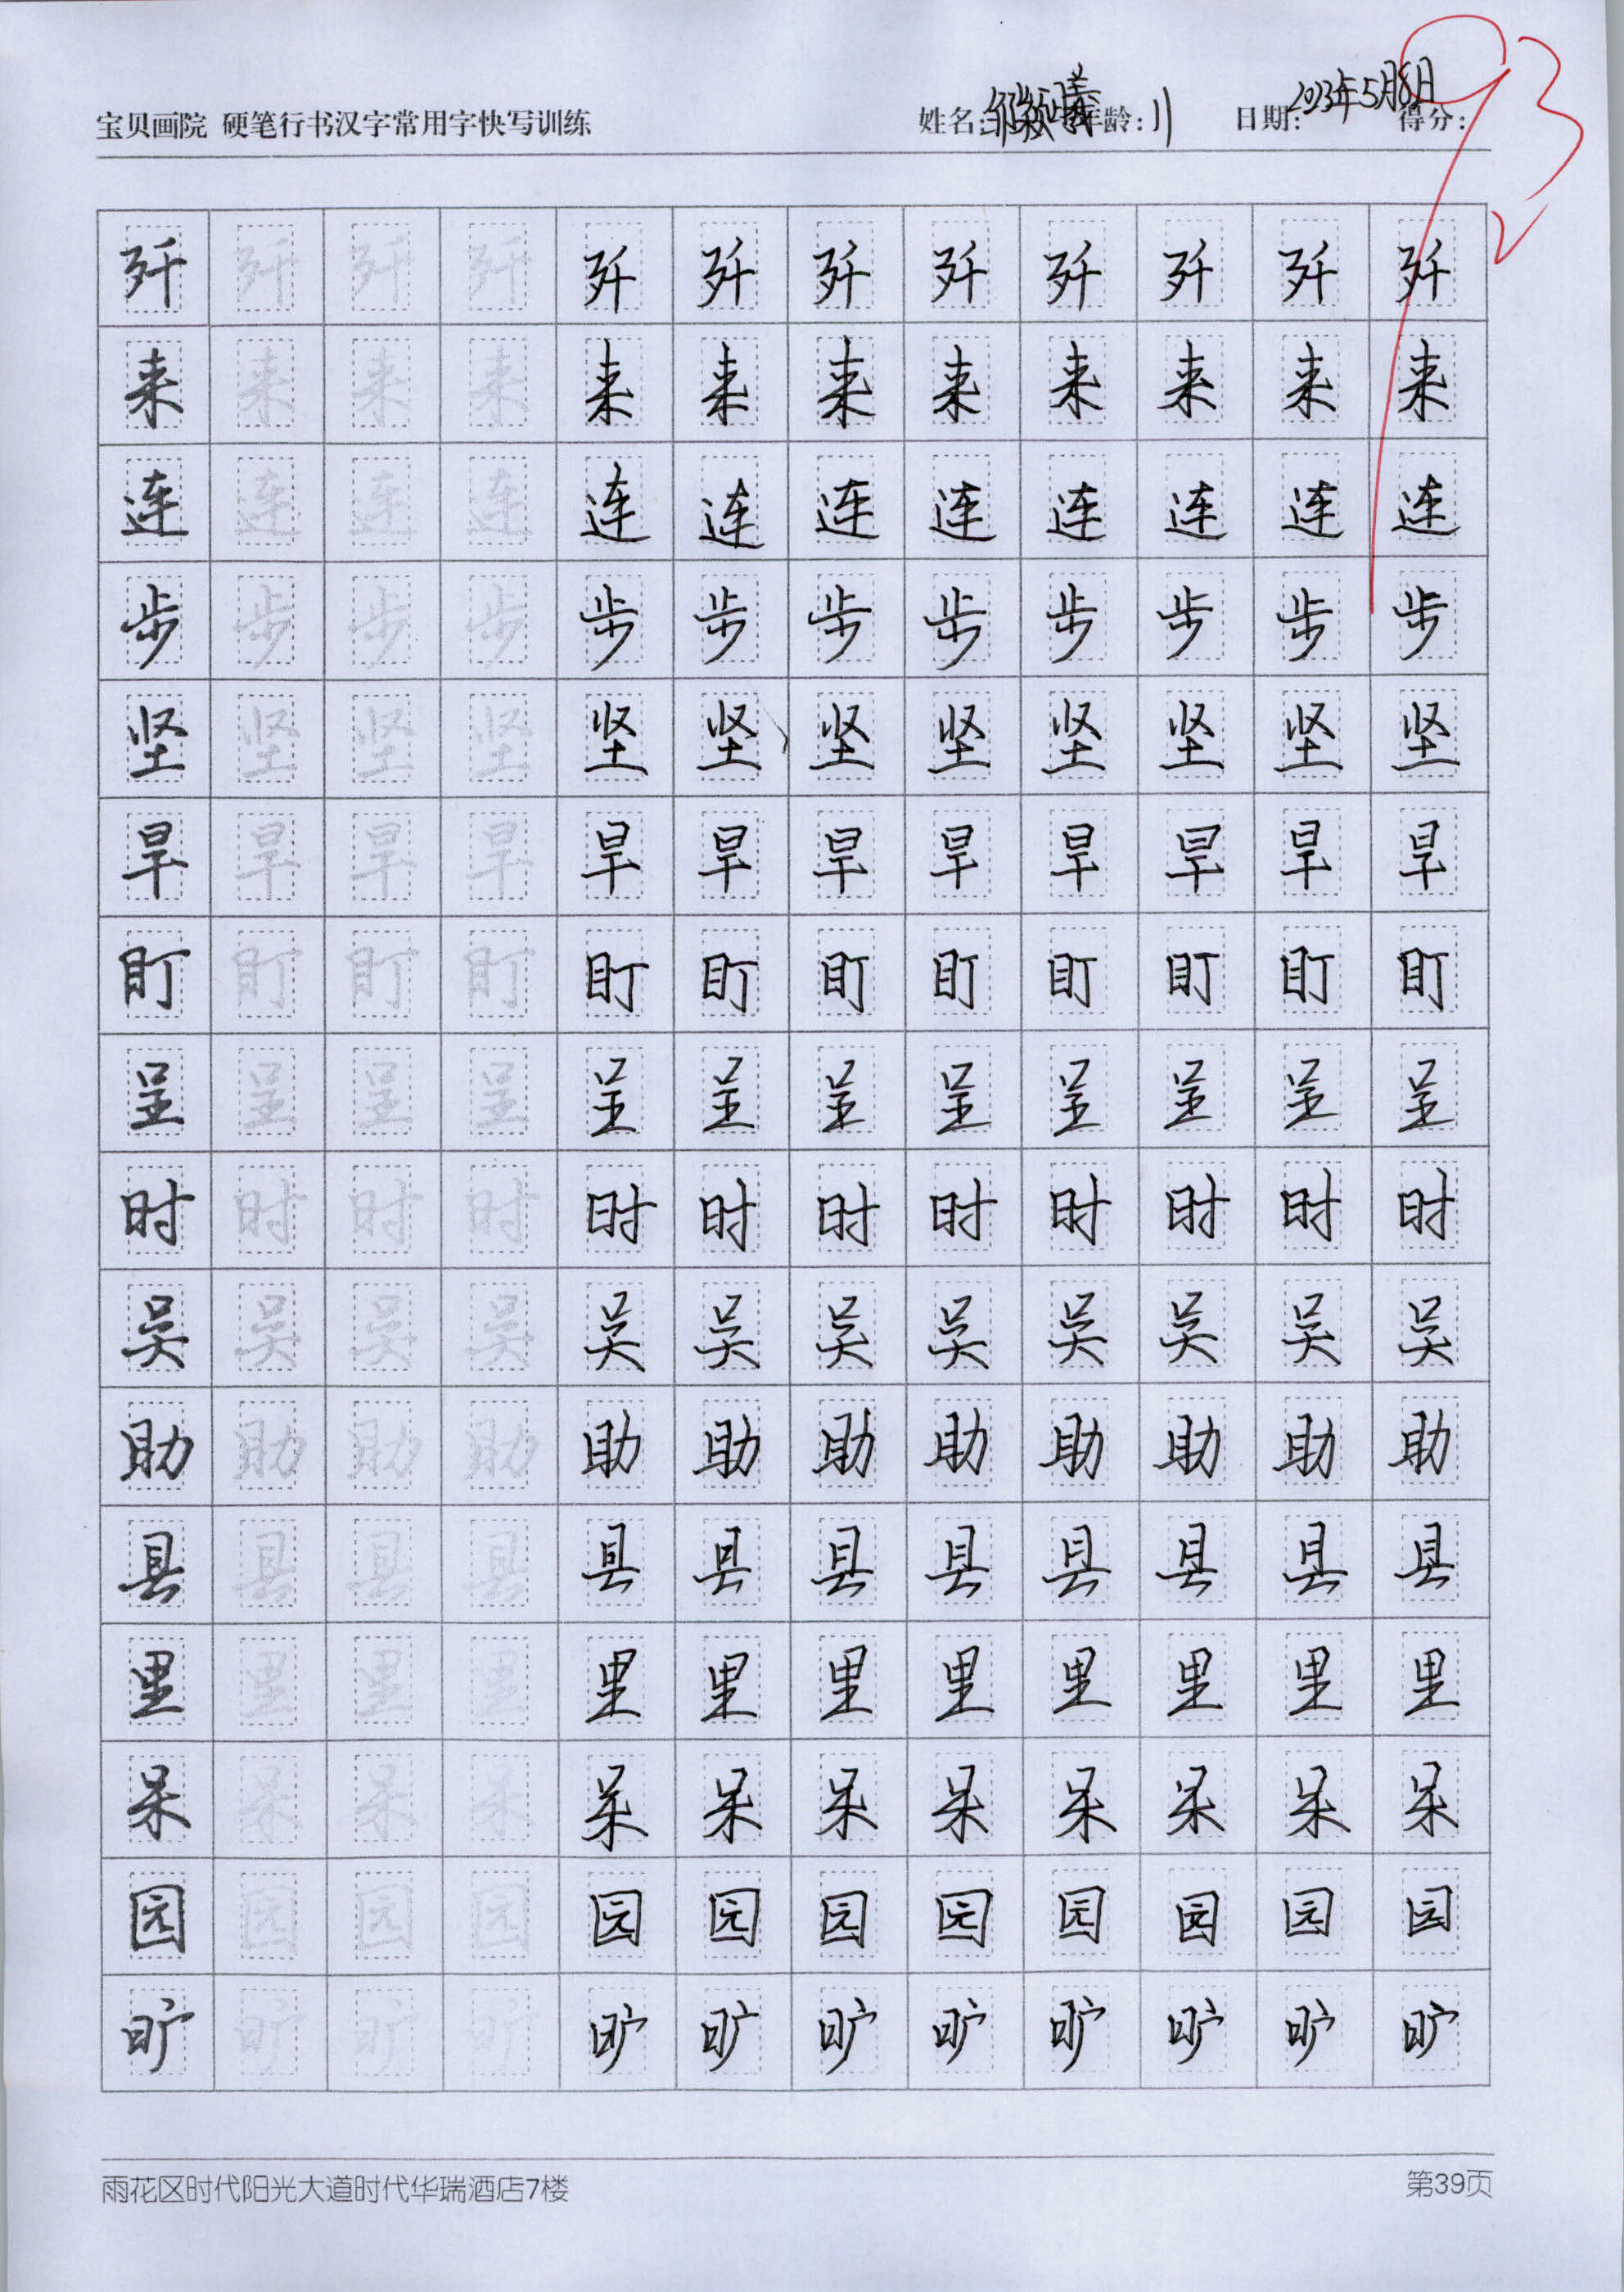 宝贝画院 硬笔行书汉字常用字快写训练 姓名: 邹颖曦 年龄: 11 日期: 2023年5月8日 得分: 93
歼 歼 歼 歼 歼 歼 歼 歼 歼 歼 歼 歼
来 来 来 来 来 来 来 来 来 来 来 来
连 连 连 连 连 连 连 连 连 连 连 连
步 步 步 步 步 步 步 步 步 步 步 步
坚 坚 坚 坚 坚 坚 坚 坚 坚 坚 坚 坚
旱 旱 旱 旱 旱 旱 旱 旱 旱 旱 旱 旱
盯 盯 盯 盯 盯 盯 盯 盯 盯 盯 盯 盯
呈 呈 呈 呈 呈 呈 呈 呈 呈 呈 呈 呈
时 时 时 时 时 时 时 时 时 时 时 时
吴 吴 吴 吴 吴 吴 吴 吴 吴 吴 吴 吴
助 助 助 助 助 助 助 助 助 助 助 助
县 县 县 县 县 县 县 县 县 县 县 县
里 里 里 里 里 里 里 里 里 里 里 里
呆 呆 呆 呆 呆 呆 呆 呆 呆 呆 呆 呆
园 园 园 园 园 园 园 园 园 园 园 园
旷 旷 旷 旷 旷 旷 旷 旷 旷 旷 旷 旷
雨花区时代阳光大道时代华瑞酒店7楼 第39页